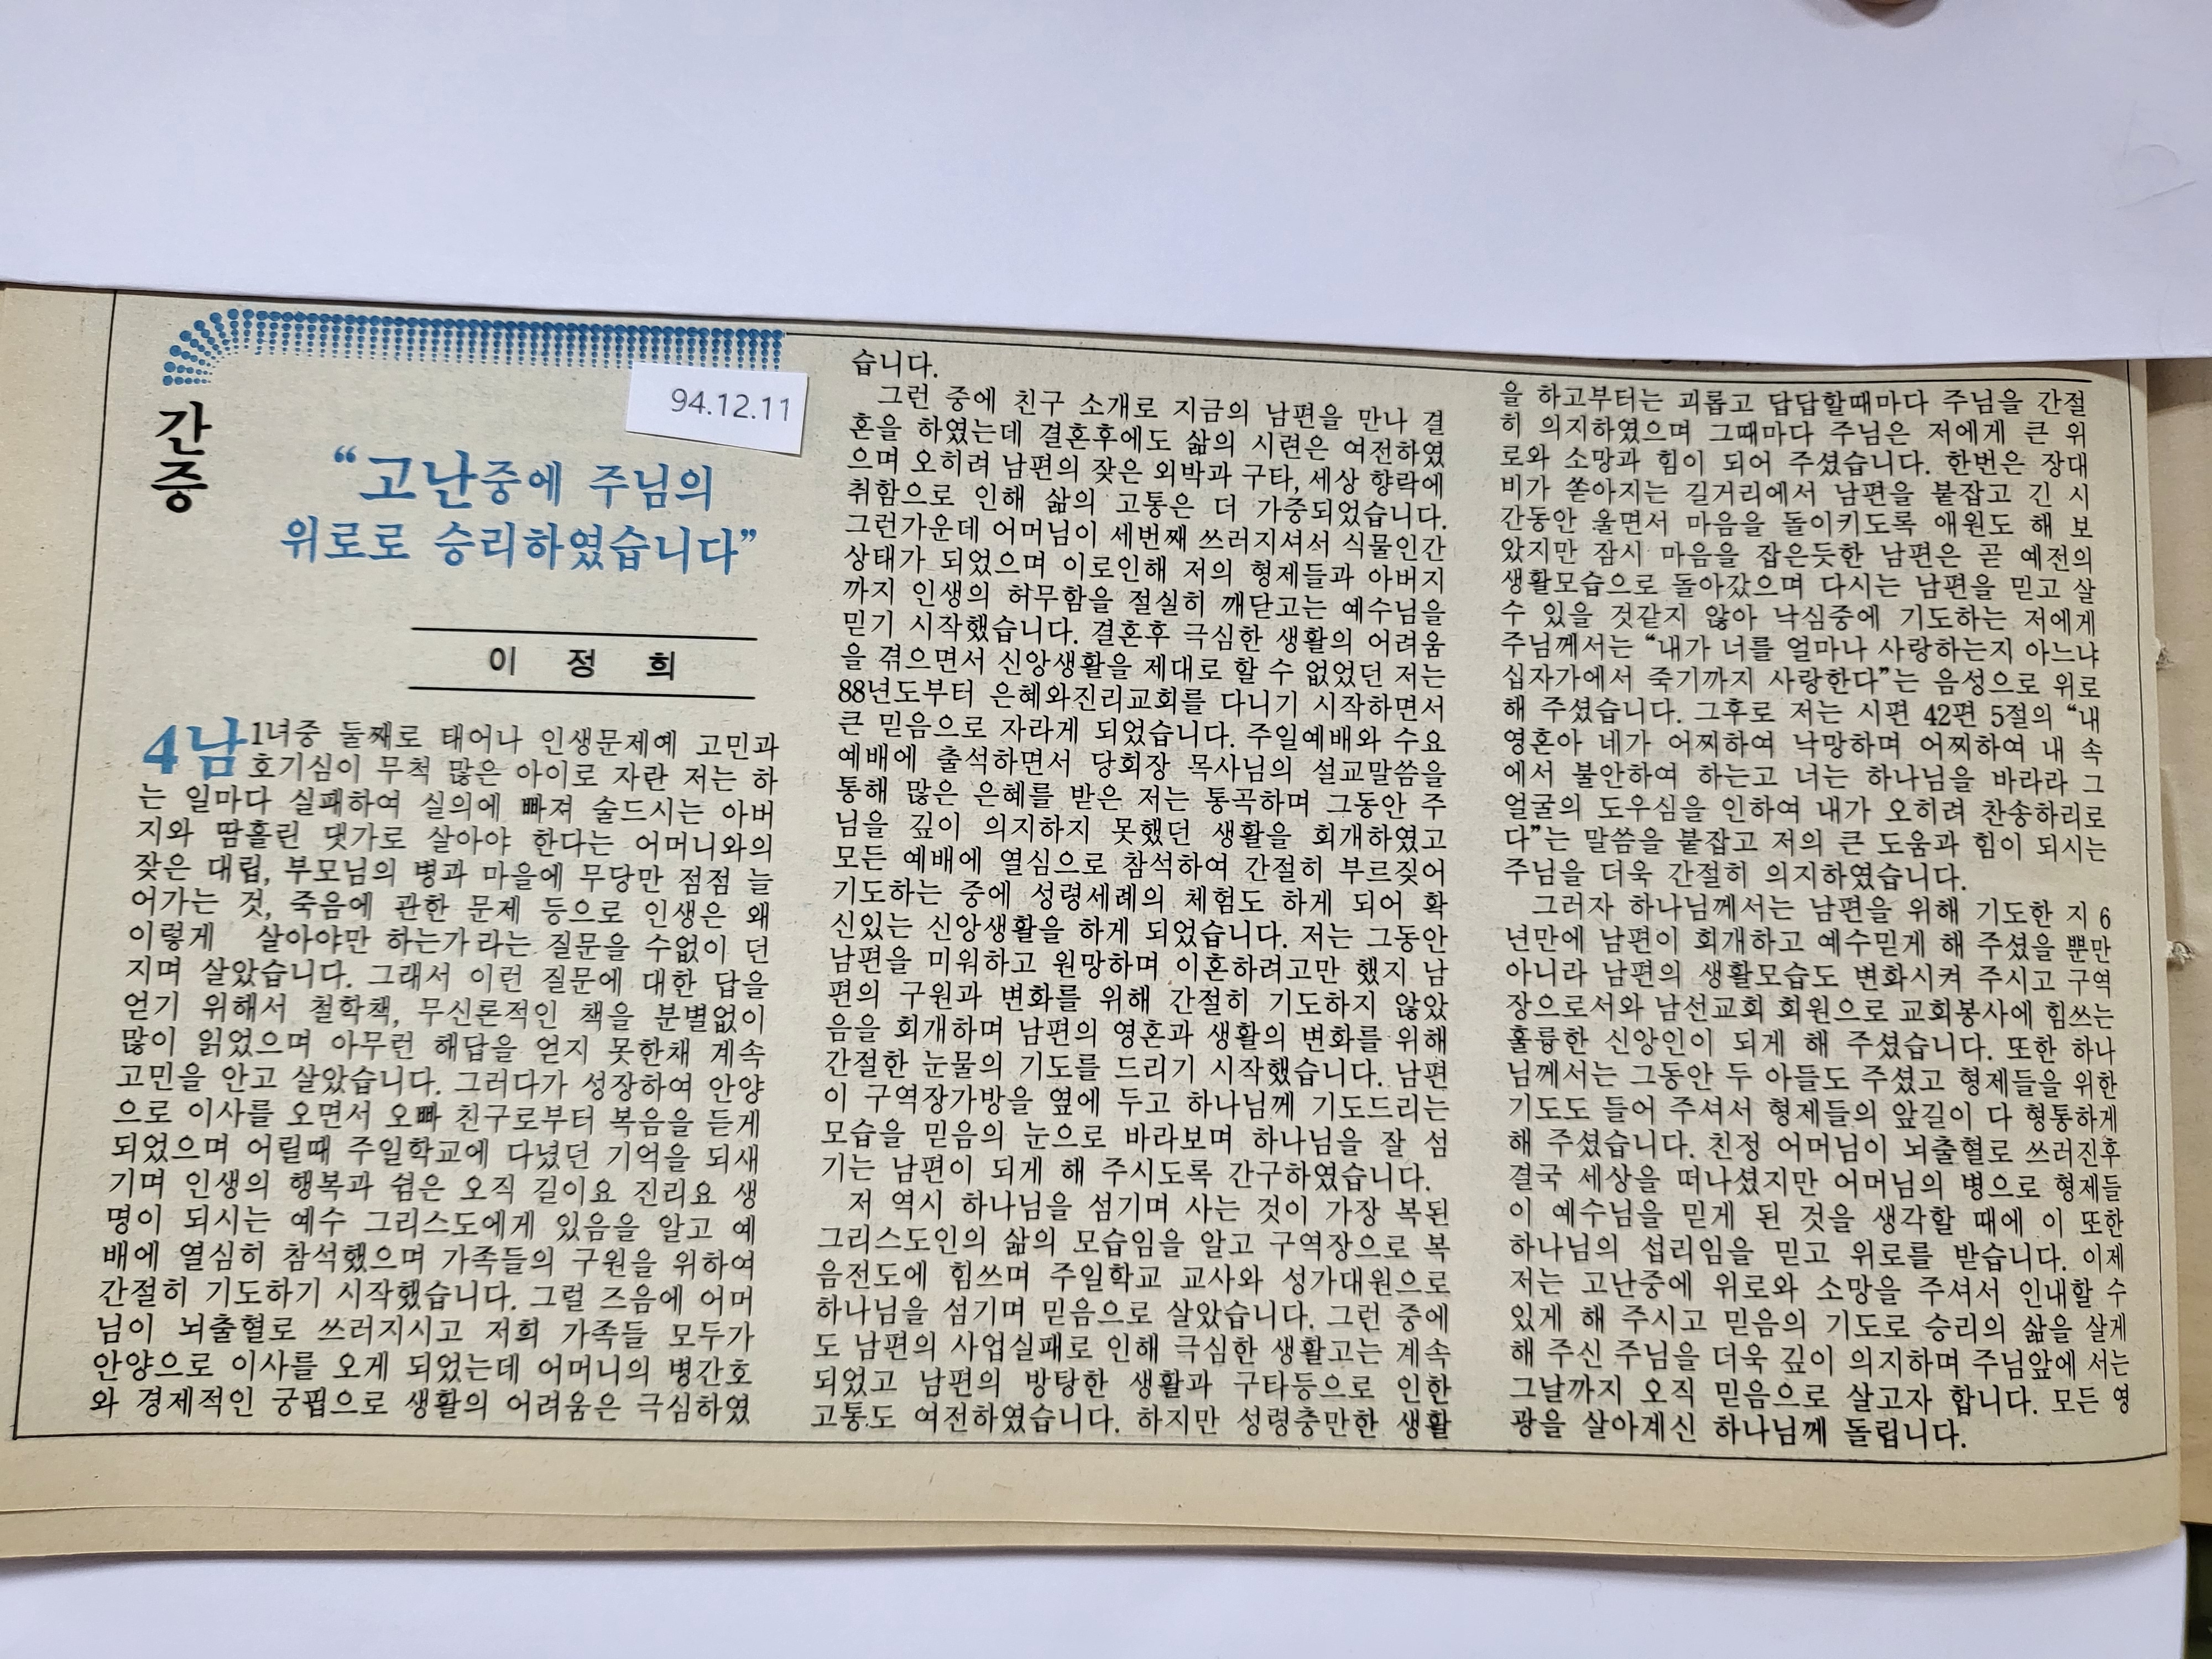 94.12.11
간증
“고난중에 주님의
위로로 승리하였습니다”
이 정 희
4남1녀중 둘째로 태어나 인생문제에 고민과
호기심이 무척 많은 아이로 자란 저는 하
는 일마다 실패하여 실의에 빠져 술드시는 아버
지와 땀흘린 댓가로 살아야 한다는 어머니와의
잦은 대립, 부모님의 병과 마을에 무당만 점점 늘
어가는 것, 죽음에 관한 문제 등으로 인생은 왜
이렇게 살아야만 하는가라는 질문을 수없이 던
지며 살았습니다. 그래서 이런 질문에 대한 답을
얻기 위해서 철학책, 무신론적인 책을 분별없이
많이 읽었으며 아무런 해답을 얻지 못한채 계속
고민을 안고 살았습니다. 그러다가 성장하여 안양
으로 이사를 오면서 오빠 친구로부터 복음을 듣게
되었으며 어릴때 주일학교에 다녔던 기억을 되새
기며 인생의 행복과 쉼은 오직 길이요 진리요 생
명이 되시는 예수 그리스도에게 있음을 알고 예
배에 열심히 참석했으며 가족들의 구원을 위하여
간절히 기도하기 시작했습니다. 그럴 즈음에 어머
님이 뇌출혈로 쓰러지시고 저희 가족들 모두가
안양으로 이사를 오게 되었는데 어머니의 병간호
와 경제적인 궁핍으로 생활의 어려움은 극심하였
습니다.
그런 중에 친구 소개로 지금의 남편을 만나 결
혼을 하였는데 결혼후에도 삶의 시련은 여전하였
으며 오히려 남편의 잦은 외박과 구타, 세상 향락에
취함으로 인해 삶의 고통은 더 가중되었습니다.
그런가운데 어머님이 세번째 쓰러지셔서 식물인간
상태가 되었으며 이로인해 저의 형제들과 아버지
까지 인생의 허무함을 절실히 깨닫고는 예수님을
믿기 시작했습니다. 결혼후 극심한 생활의 어려움
을 겪으면서 신앙생활을 제대로 할 수 없었던 저는
88년도부터 은혜와진리교회를 다니기 시작하면서
큰 믿음으로 자라게 되었습니다. 주일예배와 수요
예배에 출석하면서 당회장 목사님의 설교말씀을
통해 많은 은혜를 받은 저는 통곡하며 그동안 주
님을 깊이 의지하지 못했던 생활을 회개하였고
모든 예배에 열심으로 참석하여 간절히 부르짖어
기도하는 중에 성령세례의 체험도 하게 되어 확
신있는 신앙생활을 하게 되었습니다. 저는 그동안
남편을 미워하고 원망하며 이혼하려고만 했지 남
편의 구원과 변화를 위해 간절히 기도하지 않았
음을 회개하며 남편의 영혼과 생활의 변화를 위해
간절한 눈물의 기도를 드리기 시작했습니다. 남편
이 구역장가방을 옆에 두고 하나님께 기도드리는
모습을 믿음의 눈으로 바라보며 하나님을 잘 섬
기는 남편이 되게 해 주시도록 간구하였습니다.
저 역시 하나님을 섬기며 사는 것이 가장 복된
그리스도인의 삶의 모습임을 알고 구역장으로 복
음전도에 힘쓰며 주일학교 교사와 성가대원으로
하나님을 섬기며 믿음으로 살았습니다. 그런 중에
도 남편의 사업실패로 인해 극심한 생활고는 계속
되었고 남편의 방탕한 생활과 구타등으로 인한
고통도 여전하였습니다. 하지만 성령충만한 생활
을 하고부터는 괴롭고 답답할때마다 주님을 간절
히 의지하였으며 그때마다 주님은 저에게 큰 위
로와 소망과 힘이 되어 주셨습니다. 한번은 장대
비가 쏟아지는 길거리에서 남편을 붙잡고 긴 시
간동안 울면서 마음을 돌이키도록 애원도 해 보
았지만 잠시 마음을 잡은듯한 남편은 곧 예전의
생활모습으로 돌아갔으며 다시는 남편을 믿고 살
수 있을 것같지 않아 낙심중에 기도하는 저에게
주님께서는 “내가 너를 얼마나 사랑하는지 아느냐
십자가에서 죽기까지 사랑한다”는 음성으로 위로
해 주셨습니다. 그후로 저는 시편 42편 5절의 “내
영혼아 네가 어찌하여 낙망하며 어찌하여 내 속
에서 불안하여 하는고 너는 하나님을 바라라 그
얼굴의 도우심을 인하여 내가 오히려 찬송하리로
다”는 말씀을 붙잡고 저의 큰 도움과 힘이 되시는
주님을 더욱 간절히 의지하였습니다.
그러자 하나님께서는 남편을 위해 기도한 지 6
년만에 남편이 회개하고 예수믿게 해 주셨을 뿐만
아니라 남편의 생활모습도 변화시켜 주시고 구역
장으로서와 남선교회 회원으로 교회봉사에 힘쓰는
훌륭한 신앙인이 되게 해 주셨습니다. 또한 하나
님께서는 그동안 두 아들도 주셨고 형제들을 위한
기도도 들어 주셔서 형제들의 앞길이 다 형통하게
해 주셨습니다. 친정 어머님이 뇌출혈로 쓰러진후
결국 세상을 떠나셨지만 어머님의 병으로 형제들
이 예수님을 믿게 된 것을 생각할 때에 이 또한
하나님의 섭리임을 믿고 위로를 받습니다. 이제
저는 고난중에 위로와 소망을 주셔서 인내할 수
있게 해 주시고 믿음의 기도로 승리의 삶을 살게
해 주신 주님을 더욱 깊이 의지하며 주님앞에 서는
그날까지 오직 믿음으로 살고자 합니다. 모든 영
광을 살아계신 하나님께 돌립니다.